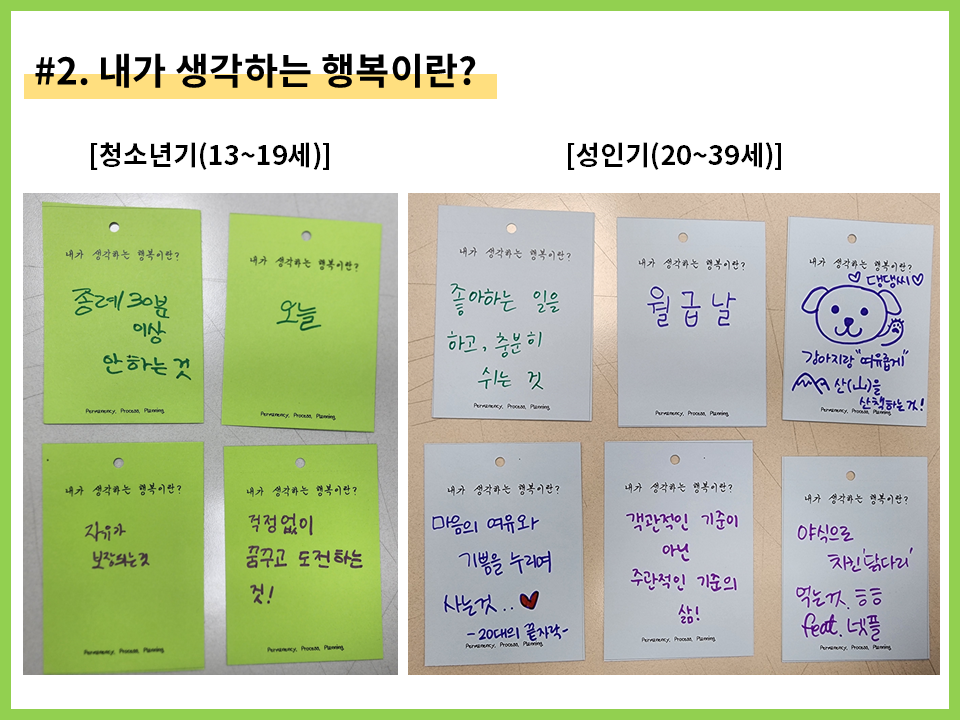 #2. 내가 생각하는 행복이란?
[청소년기(13~19세)]
[성인기(20~39세)]
내가 생각하는 행복이란?
종례 30분
이상
안하는 것
Permanency, Process, Planning
내가 생각하는 행복이란?
오늘
Permanency, Process, Planning
내가 생각하는 행복이란?
자유가
보장되는것
Permanency, Process, Planning
내가 생각하는 행복이란?
걱정없이
꿈꾸고 도전하는
것!
Permanency, Process, Planning
내가 생각하는 행복이란?
좋아하는 일을
하고, 충분히
쉬는 것
Permanency, Process, Planning
내가 생각하는 행복이란?
월급날
Permanency, Process, Planning
내가 생각하는 행복이란?
♡댕댕씨♡
강아지랑 "여유롭게"
산(山)을
산책하는것!
Permanency, Process, Planning
내가 생각하는 행복이란?
마음의 여유와
기쁨을 누리며
사는것..♥
-20대의 끝자락-
Permanency, Process, Planning
내가 생각하는 행복이란?
객관적인 기준이
아닌
주관적인 기준의
삶!
Permanency, Process, Planning
내가 생각하는 행복이란?
야식으로
치킨'닭다리'
먹는것. ㅎㅎ
feat. 넷플
Permanency, Process, Planning